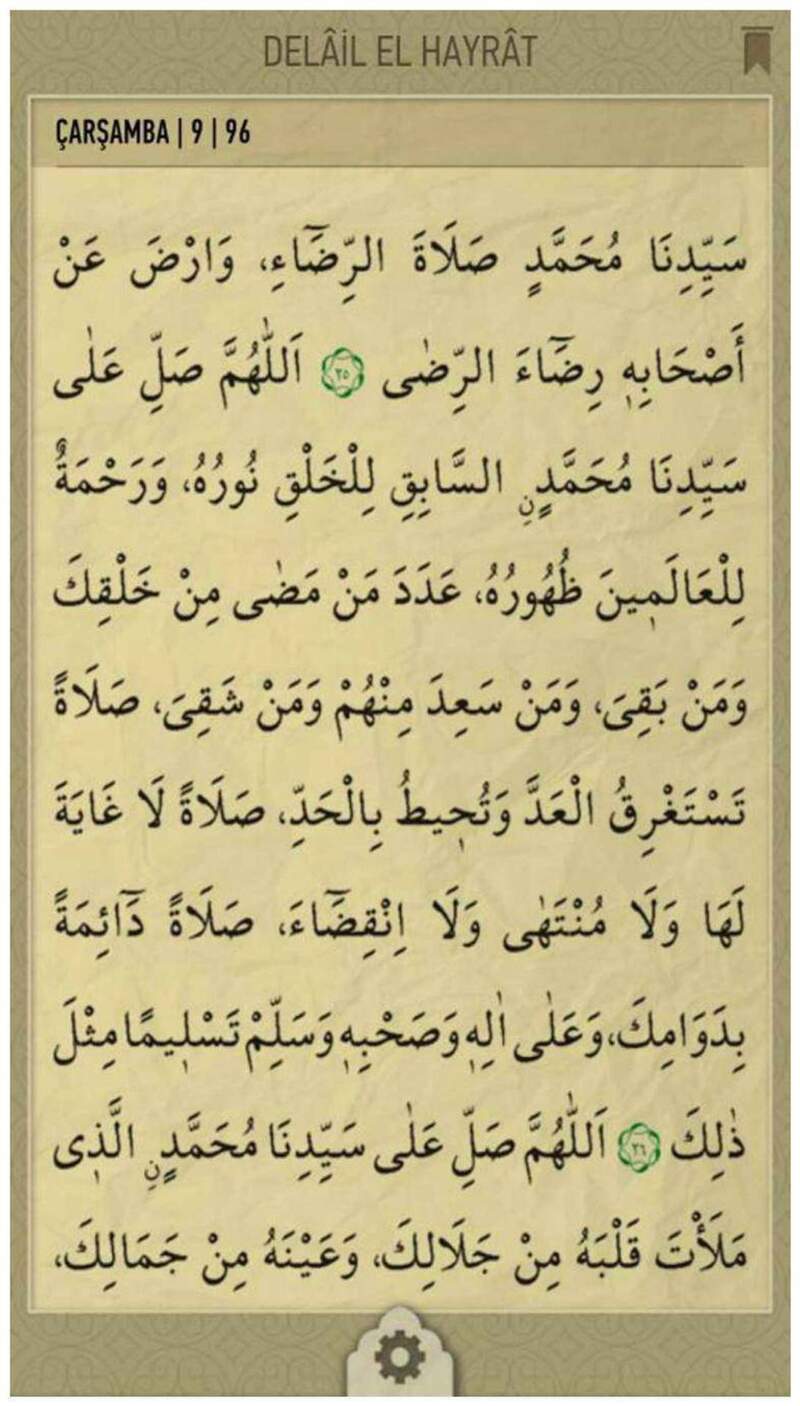 DELÂİL EL HAYRÂT
ÇARŞAMBA | 9 | 96
سَيِّدِنَا مُحَمَّدٍ صَلَاةَ الرِّضَٓاءِ، وَارْضَ عَنْ
أَصْحَابِهٖ رِضَٓاءَ الرِّضٰى ٢٥ اَللّٰهُمَّ صَلِّ عَلٰى
سَيِّدِنَا مُحَمَّدٍنِ السَّابِقِ لِلْخَلْقِ نُورُهُ، وَرَحْمَةٌ
لِلْعَالَمٖينَ ظُهُورُهُ، عَدَدَ مَنْ مَضٰى مِنْ خَلْقِكَ
وَمَنْ بَقِىَ، وَمَنْ سَعِدَ مِنْهُمْ وَمَنْ شَقِىَ، صَلَاةً
تَسْتَغْرِقُ الْعَدَّ وَتُحٖيطُ بِالْحَدِّ، صَلَاةً لَا غَايَةَ
لَهَا وَلَا مُنْتَهٰى وَلَا اِنْقِضَٓاءَ، صَلَاةً دَٓائِمَةً
بِدَوَامِكَ، وَعَلٰى اٰلِهٖ وَصَحْبِهٖ وَسَلِّمْ تَسْلٖيمًا مِثْلَ
ذٰلِكَ ٢٦ اَللّٰهُمَّ صَلِّ عَلٰى سَيِّدِنَا مُحَمَّدٍنِ الَّذٖى
مَلَأْتَ قَلْبَهُ مِنْ جَلَالِكَ، وَعَيْنَهُ مِنْ جَمَالِكَ،